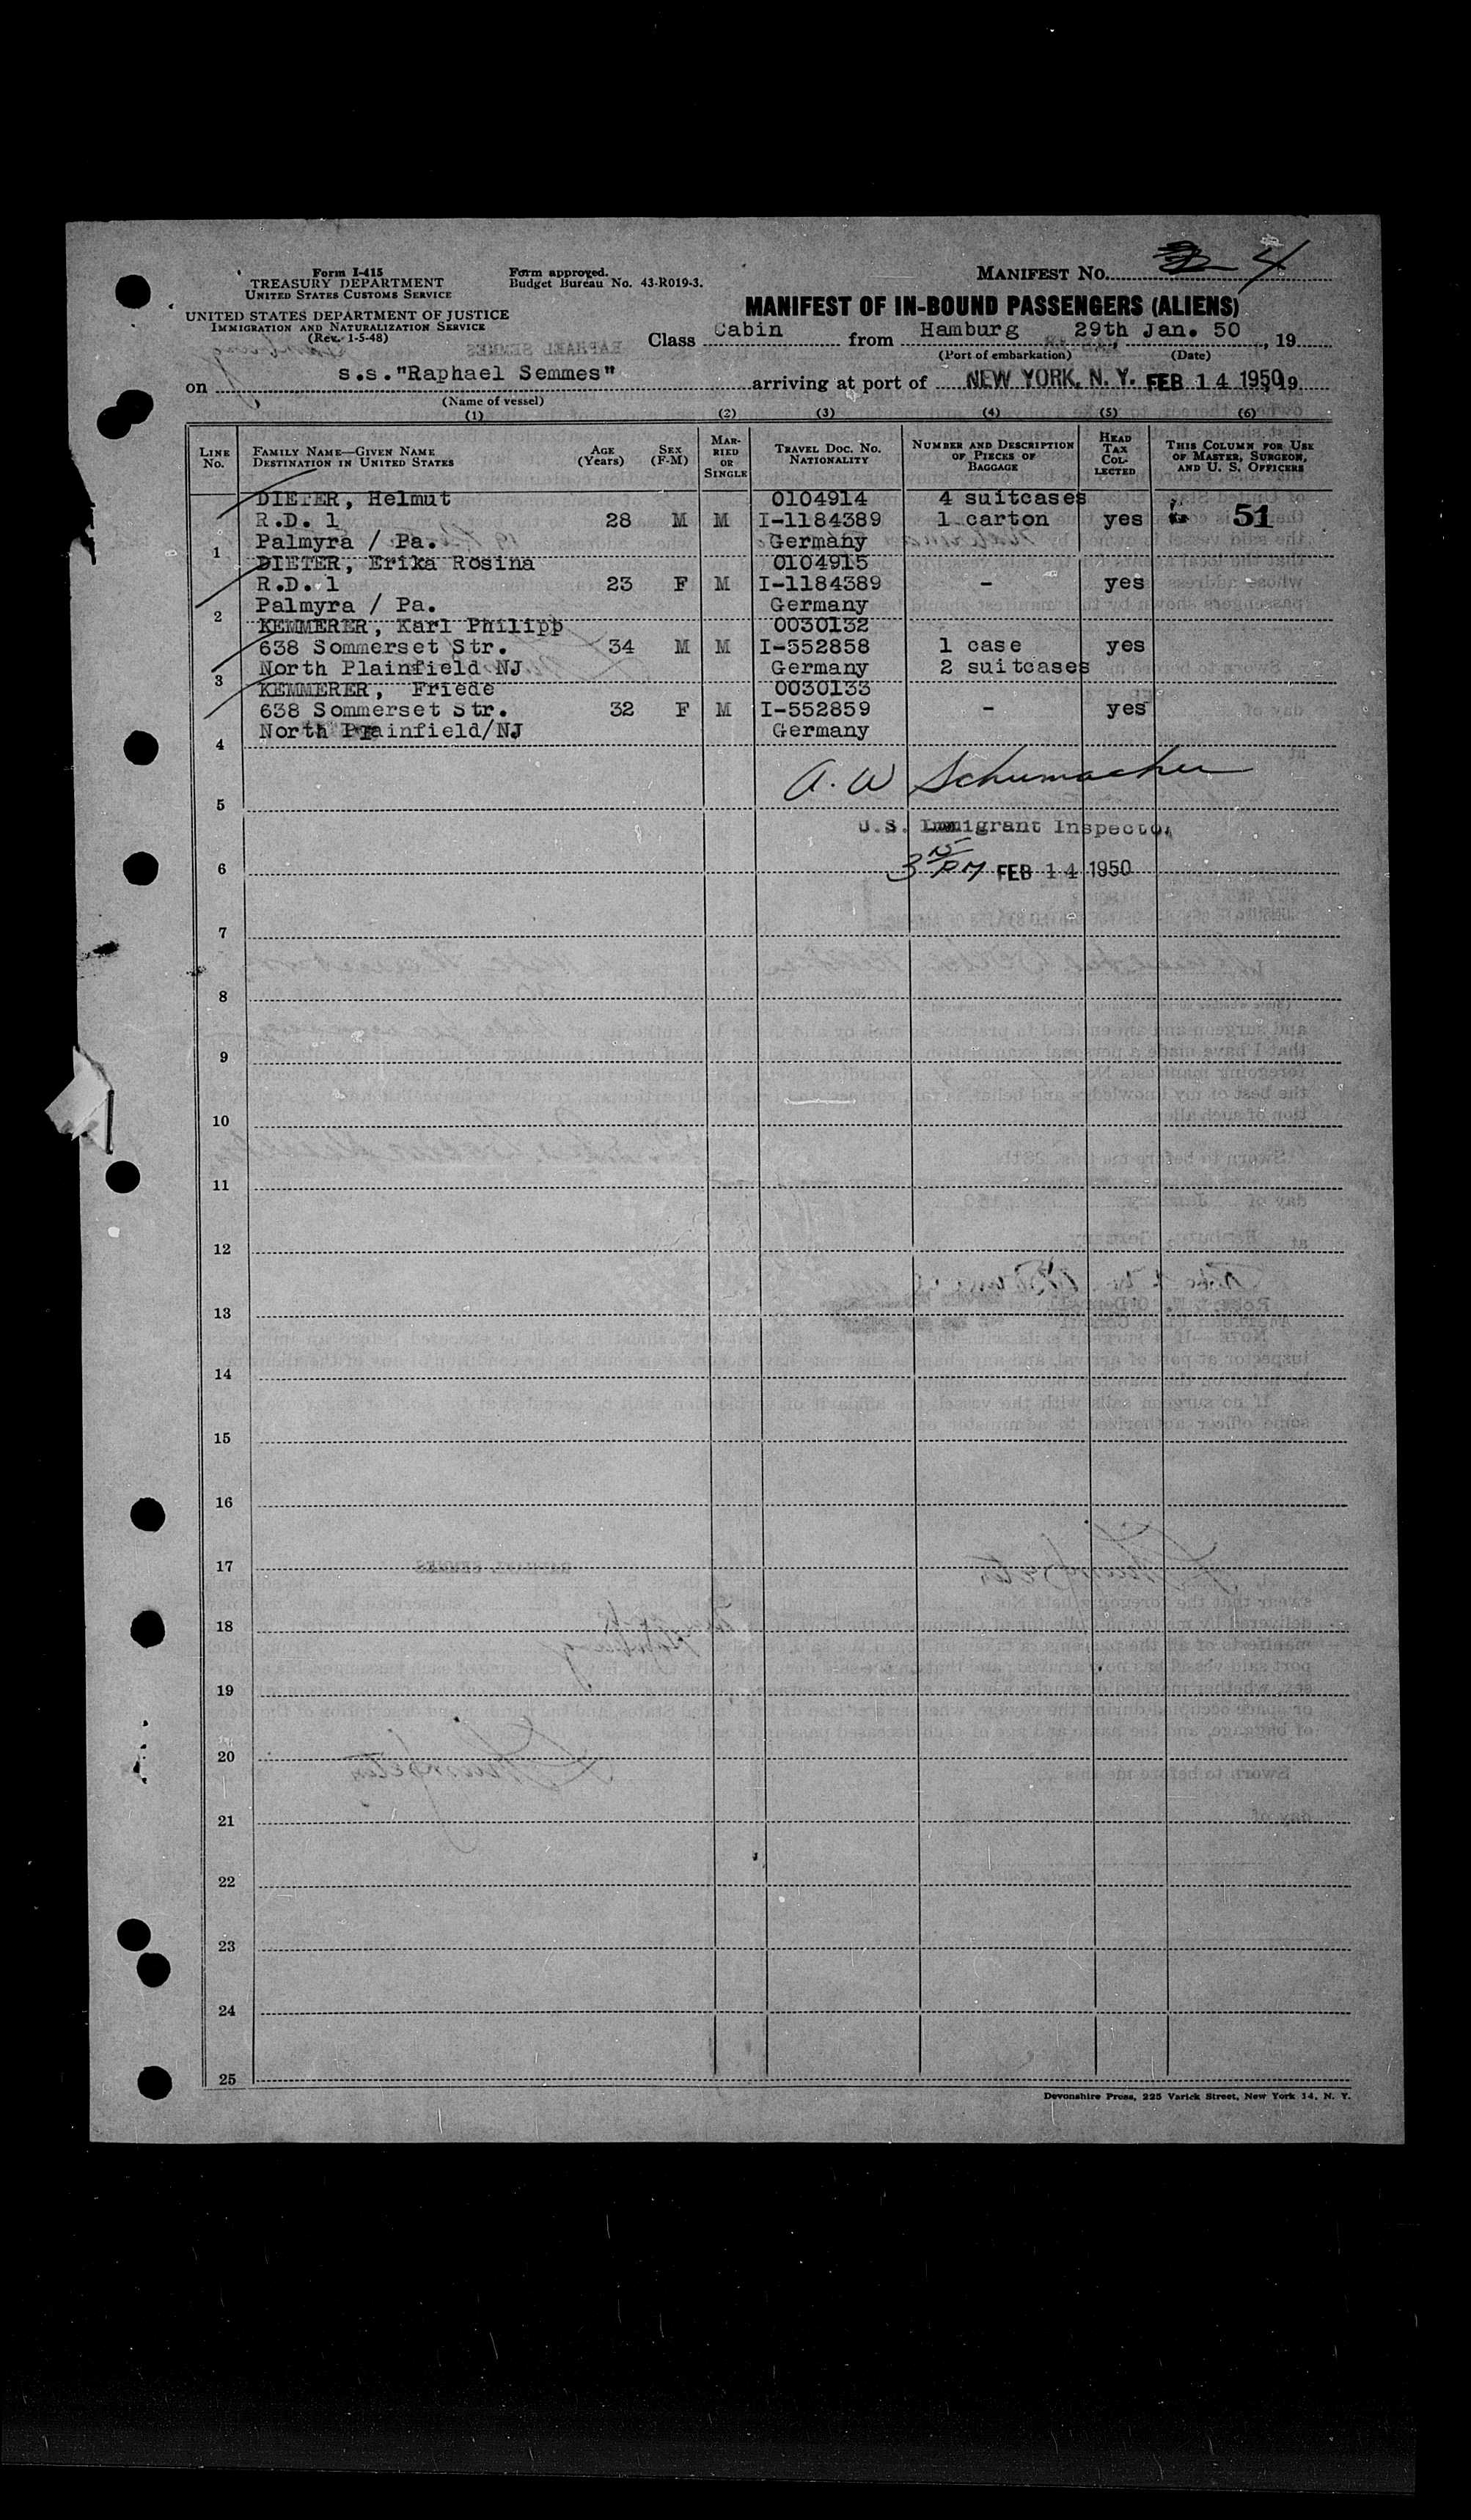 Form I-415
TREASURY DEPARTMENT
UNITED STATES CUSTOMS SERVICE
UNITED STATES DEPARTMENT OF JUSTICE
IMMIGRATION AND NATURALIZATION SERVICE
(Rev. 1-5-48)
Form approved.
Budget Bureau No. 43-R019-3.
MANIFEST No. 4
MANIFEST OF IN-BOUND PASSENGERS (ALIENS)
Class Cabin from Hamburg 29th Jan. 50, 19
(Port of embarkation) (Date)
on s.s."Raphael Semmes" arriving at port of NEW YORK, N. Y. FEB 14 1950, 19
(Name of vessel)
(1) (2) (3) (4) (5) (6)
LINE No. FAMILY NAME—GIVEN NAME DESTINATION IN UNITED STATES AGE (Years) SEX (F-M) MARRIED OR SINGLE TRAVEL DOC. NO. NATIONALITY NUMBER AND DESCRIPTION OF PIECES OF BAGGAGE HEAD TAX COLLECTED THIS COLUMN FOR USE OF MASTER, SURGEON, AND U. S. OFFICERS
DIETER, Helmut 0104914 4 suitcases
R.D. 1 28 M M I-1184389 1 carton yes 51
1 Palmyra / Pa. Germany
DIETER, Erika Rosina 0104915
R.D. 1 23 F M I-1184389 - yes
2 Palmyra / Pa. Germany
KEMMERER, Karl Philipp 0030132
638 Sommerset Str. 34 M M I-552858 1 case yes
3 North Plainfield NJ Germany 2 suitcases
KEMMERER, Friede 0030133
638 Sommerset Str. 32 F M I-552859 - yes
4 North Plainfield/NJ Germany
A. W Schumacher
5
U.S. Immigrant Inspector
6 3 15 PM FEB 14 1950
7
8
9
10
11
12
13
14
15
16
17
18
19
20
21
22
23
24
25
Devonshire Press, 225 Varick Street, New York 14, N. Y.